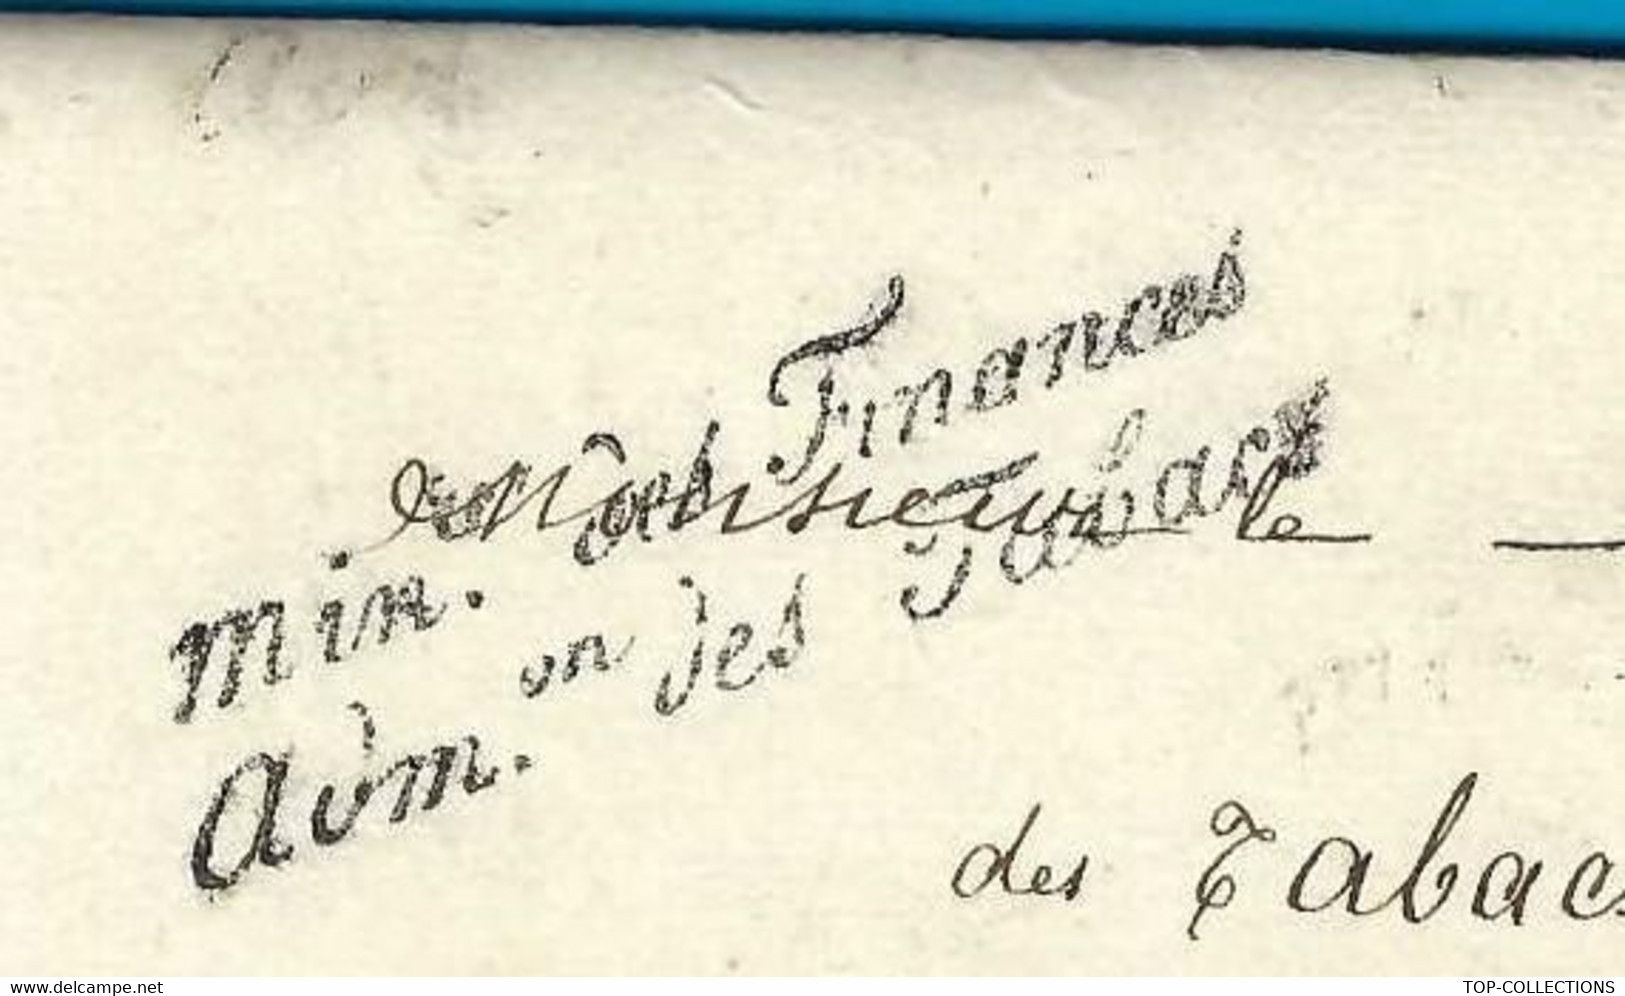 Min. des Finances
Monsieur le
Adm. on des Tabacs
des Tabacs
www.delcampe.net
TOP-COLLECTIONS